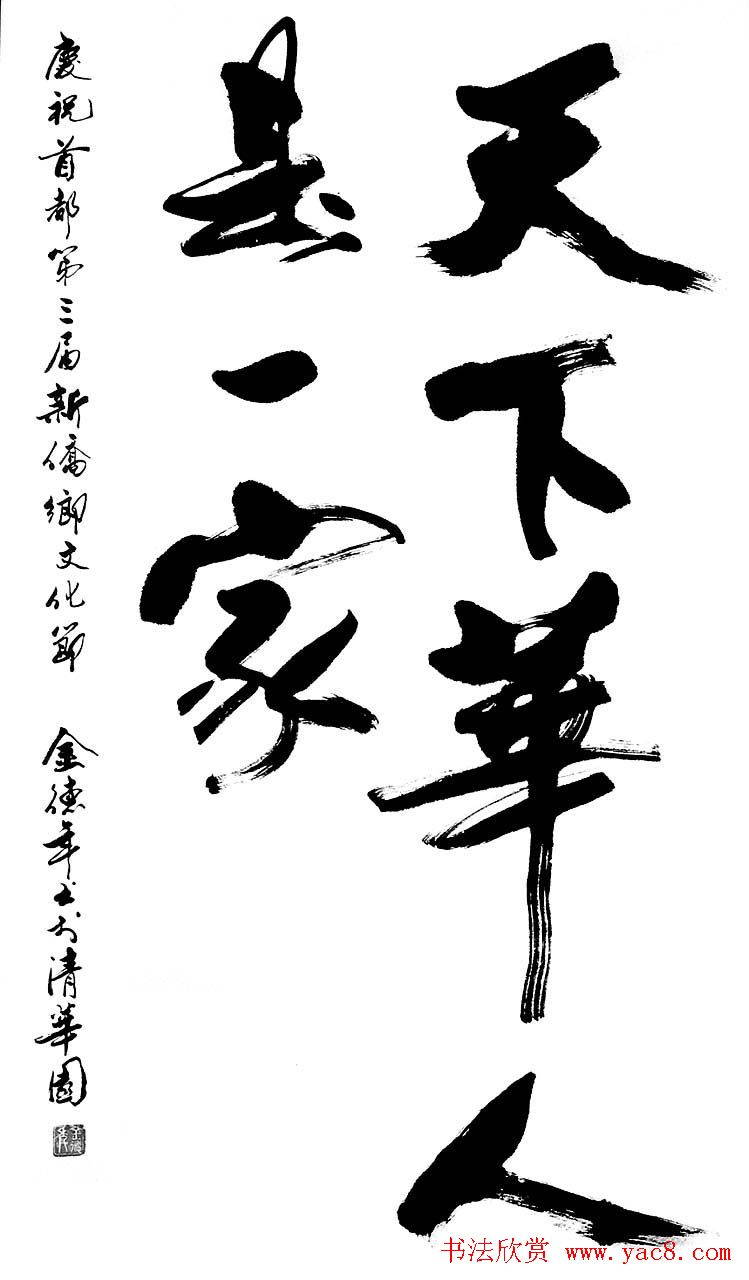 天下華人
是一家
慶祝首都第三届新僑鄉文化節 金德年书於清華園
书法欣赏 www.yac8.com